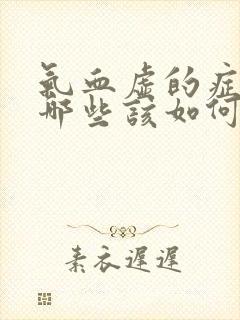 氣血虛的症
哪些該如何
素衣遲遲